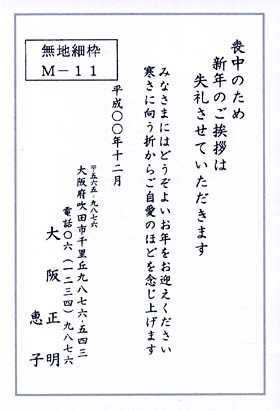 喪中のため
新年のご挨拶は
失礼させていただきます
みなさまにはどうぞよいお年をお迎えください
寒さに向う折からご自愛のほどを念じ上げます
平成〇〇年十二月
〒五六五-九八七六
大阪府吹田市千里丘九八七六-五四三
電話〇六(一二三四)九八七六
大阪正明
恵子
無地細枠
M-11